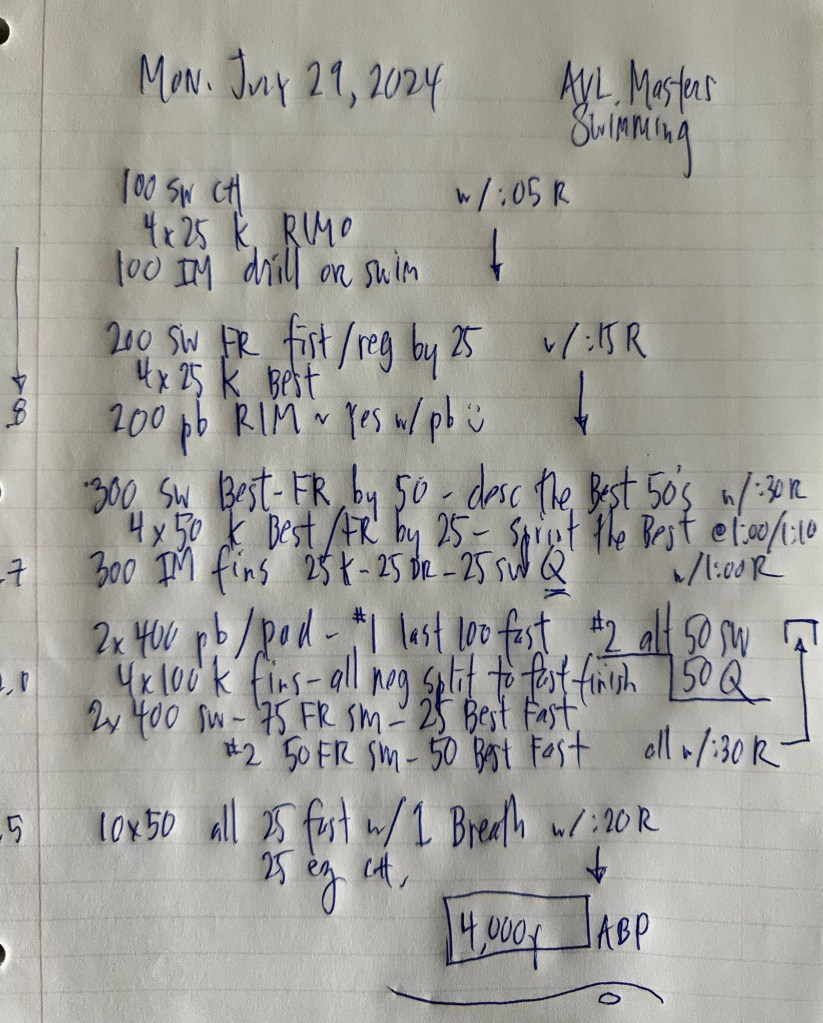 Mon. July 29, 2024
AVL. Masters
Swimming
100 SW CH w/:05 R
4x25 K RIMO
100 IM drill or swim
200 SW FR fist/reg by 25 w/:15 R
4x25 K Best
8
200 pb RIM ~ Yes w/pb
300 SW Best-FR by 50 - desc the Best 50's w/:30 R
4x50 K Best/FR by 25 - sprint the Best @1:00/1:10
.7
300 IM fins 25K-25DR-25SW Q w/1:00 R
2x400 pb/pad - #1 last 100 fast #2 alt 50 SW
50 Q
.0
4x100 K fins-all neg split to fast finish
2x400 SW-75 FR SM-25 Best Fast
#2 50 FR SM-50 Best Fast all w/:30 R
.5
10x50 all 25 fast w/1 Breath w/:20 R
25 ez CH.
4,000y ABP